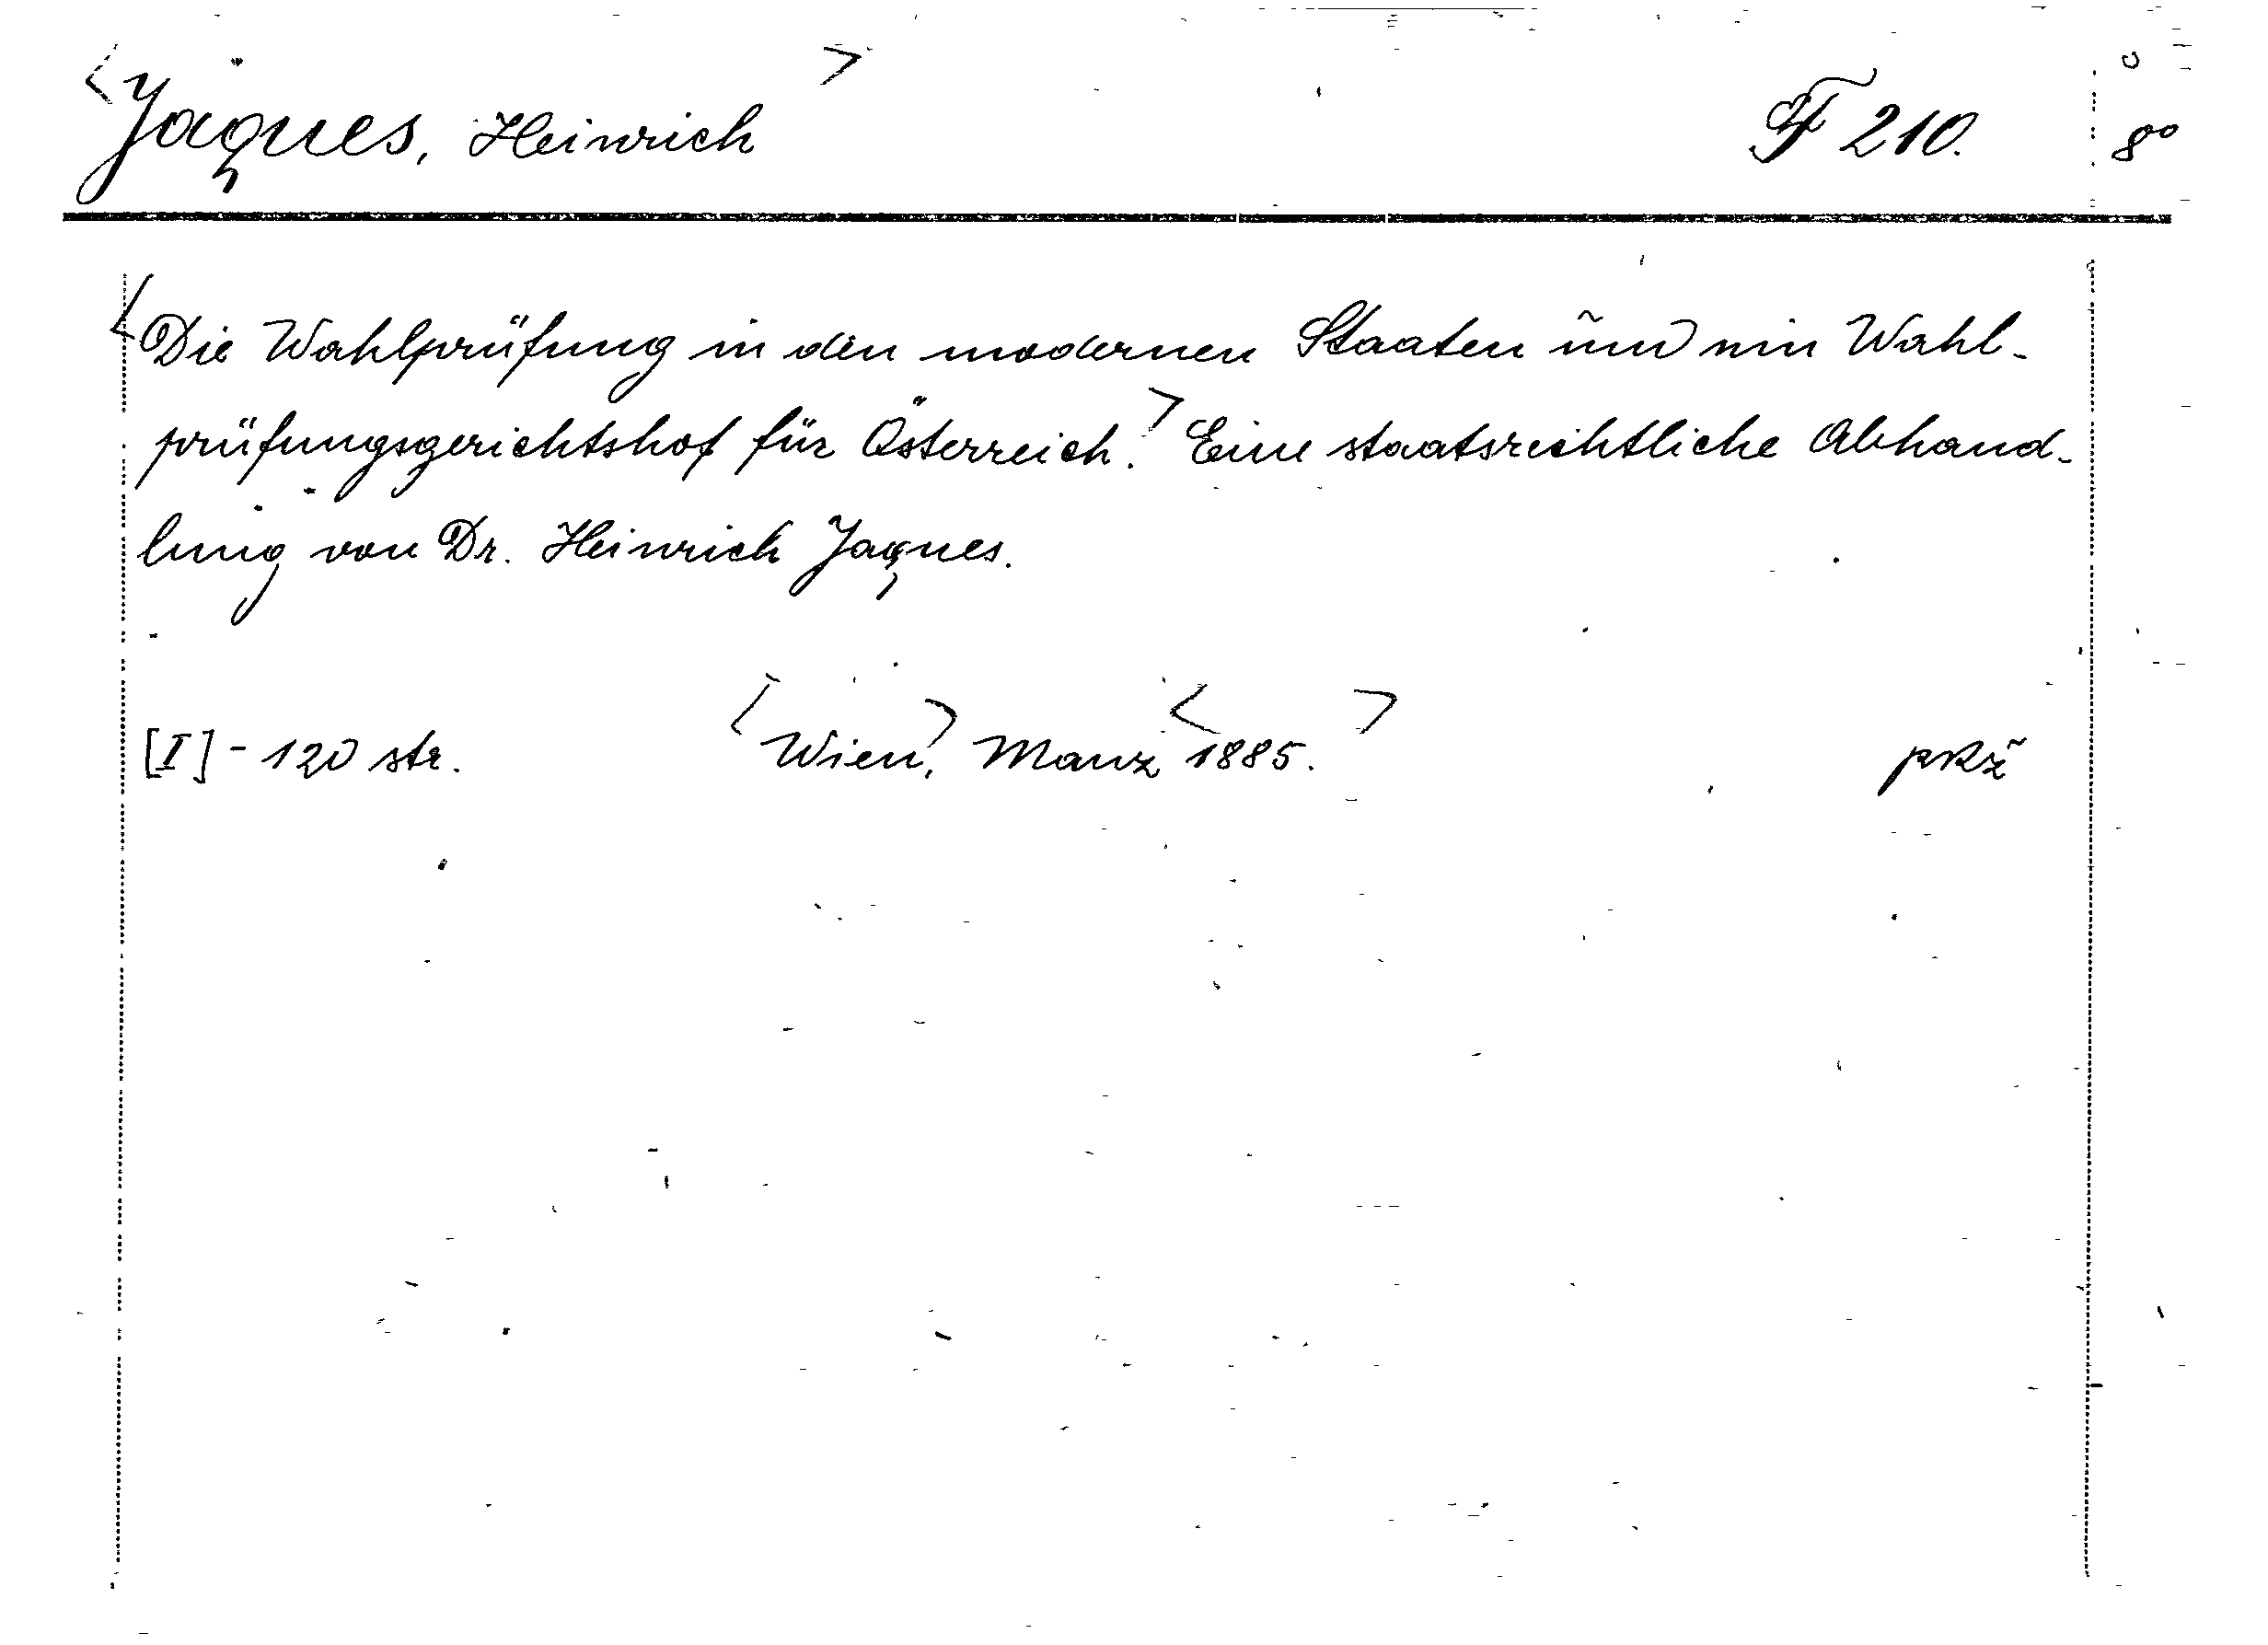 <Jaques, Heinrich> F 210. 8°
<Die Wahlprüfung in den modernen Staaten und ein Wahl-
prüfungsgerichtshof für Österreich.> Eine staatsrechtliche Abhand-
lung von Dr. Heinrich Jaques.
[I] - 120 str. <Wien,> Manz <1885.>